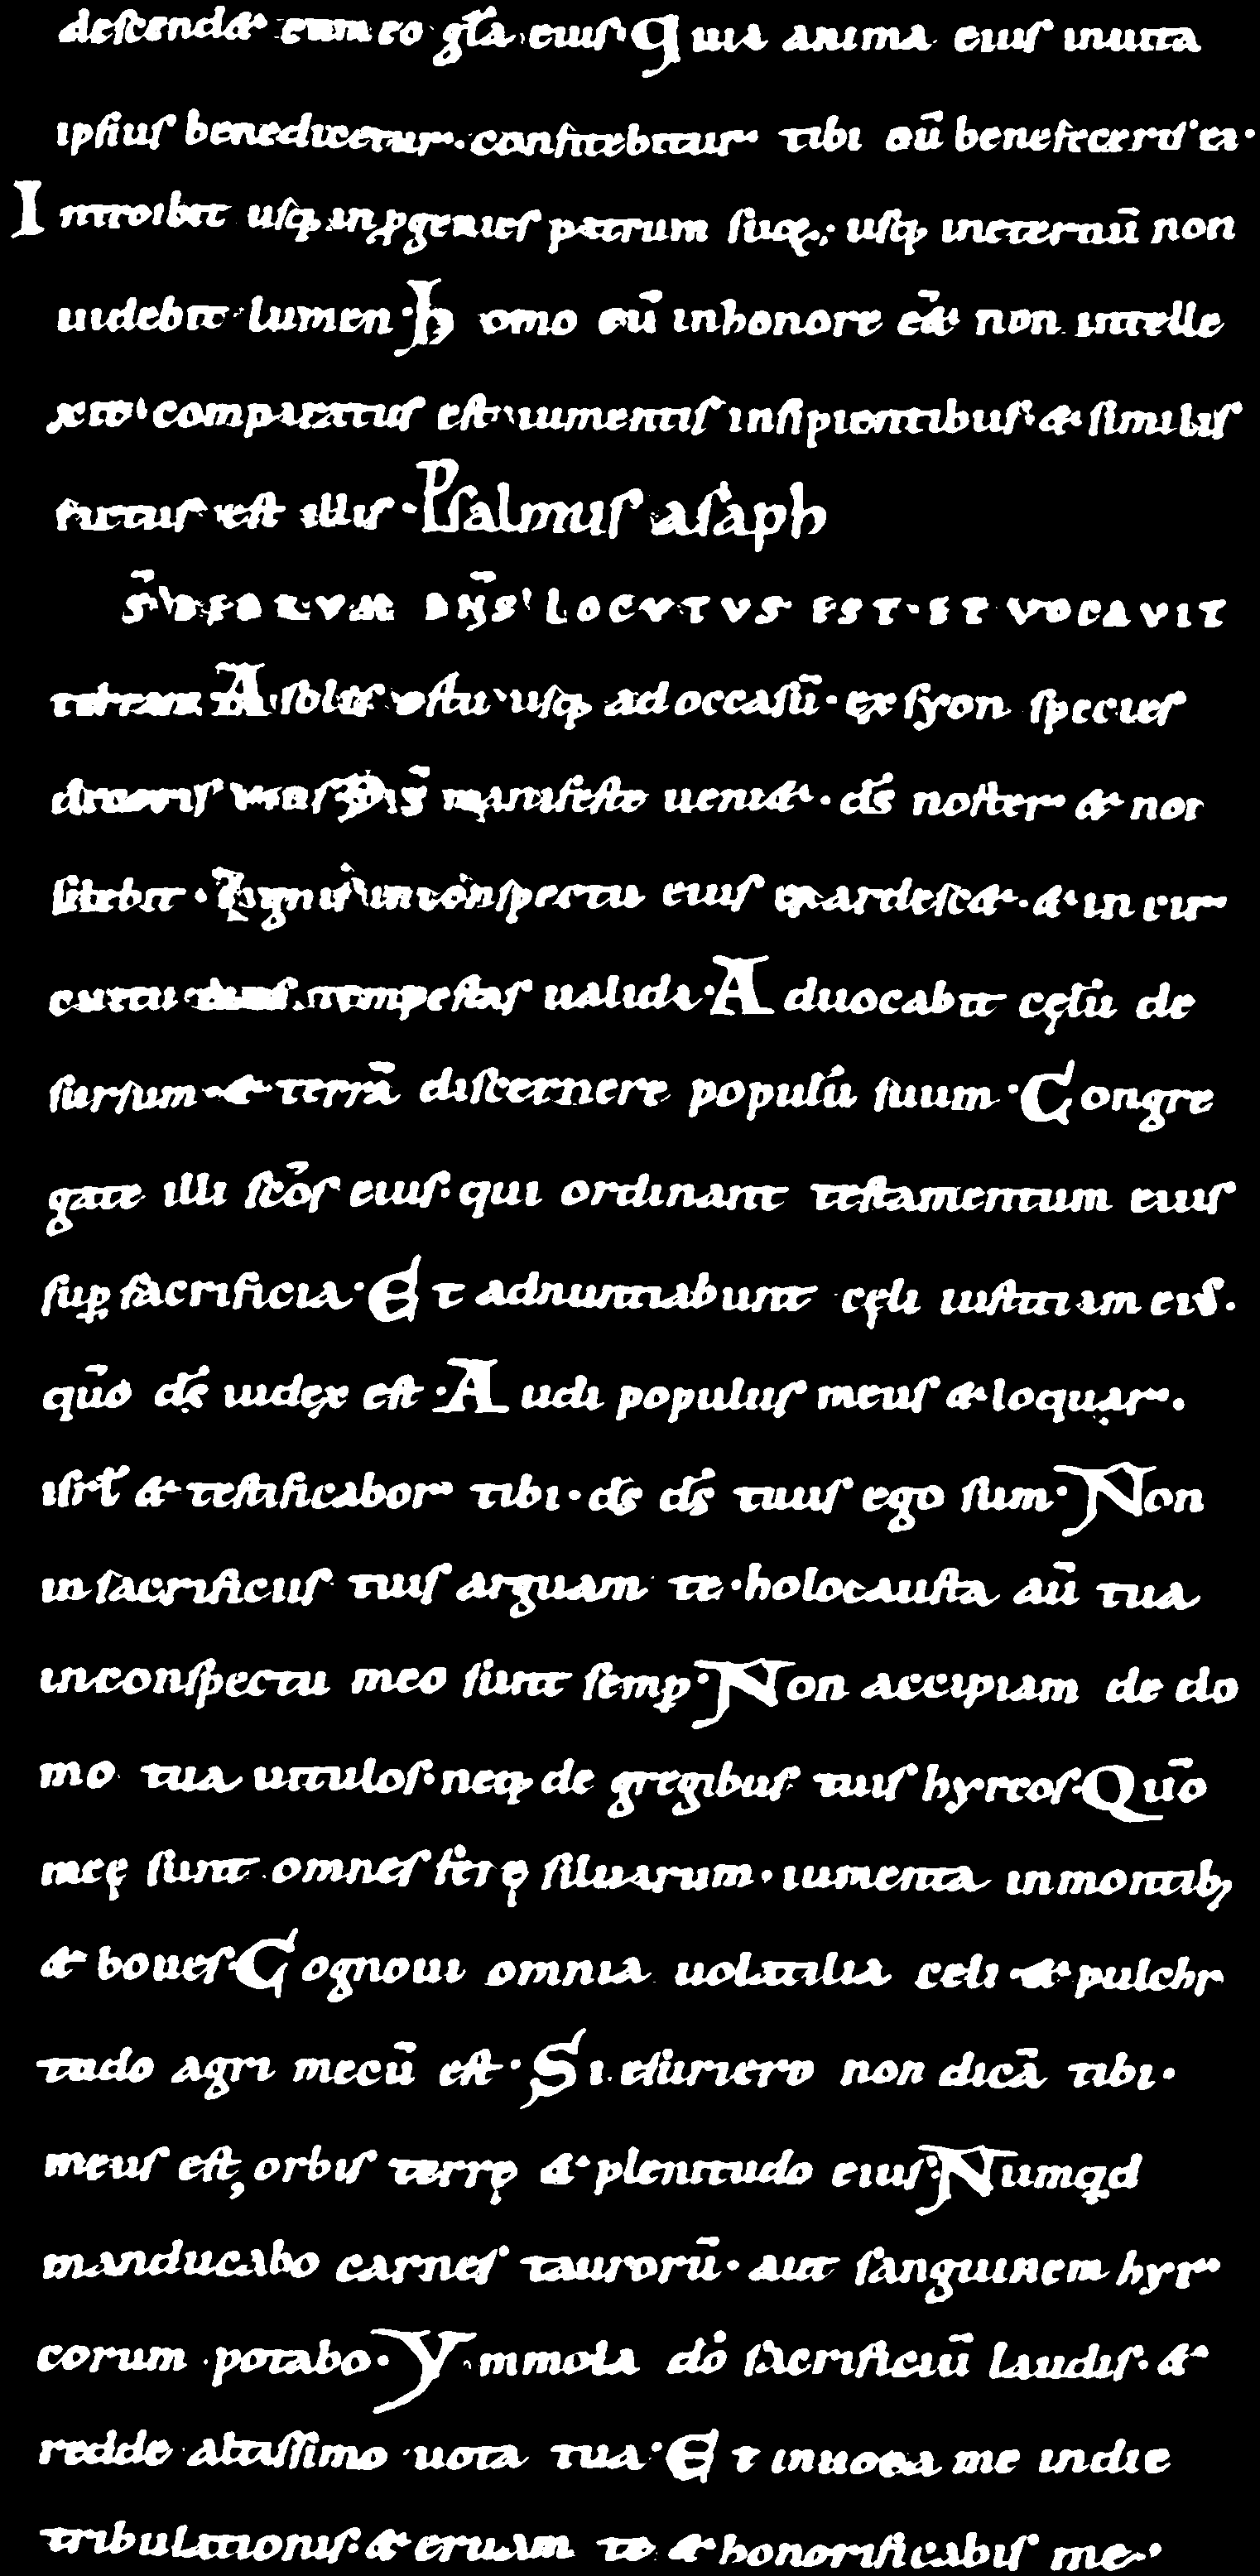 descendet cum eo gła eius. Quia anima eius in uita
ipsius benedicetur. confitebitur tibi cū benefeceris ei.
Introibit usq; in pgenies patrum suoꝝ; usq; in eternū non
uidebit lumen. Homo cū in honore eēt non intelle
xit. comparatus est iumentis insipientibus. et similis
factus est illis. Psalmus asaph
DS DEORVM DN̄S LOCVTVS EST. ET VOCAVIT
terram A solis ortu usq; ad occasū. ex syon species
decoris eius D̄s manifeste ueniet. ds̄ noster et non
silebit. Ignis in conspectu eius exardescet. et in cir
cuitu eius tempestas ualida. Aduocabit cęlū de
sursum et terrā discernere populū suum. Congre
gate illi scōs eius. qui ordinant testamentum eius
sup sacrificia. Et adnuntiabunt cęli iustitiam eius.
quō ds̄ iudex est. Audi populus meus et loquar.
isrł et testificabor tibi. ds̄ ds̄ tuus ego sum. Non
in sacrificiis tuis arguam te. holocausta aū tua
in conspectu meo sunt semp. Non accipiam de do
mo tua uitulos. neq; de gregibus tuis hyrcos. Quō
meę sunt omnes ferę siluarum. iumenta in montib;
et boues. Cognoui omnia uolatilia celi et pulchri
tudo agri mecū est. Si esuriero non dicā tibi.
meus est, orbis terrę et plenitudo eius. Numqd
manducabo carnes taurorū. aut sanguinem hyr
corum potabo. Ymmola dō sacrificiū laudis. et
redde altissimo uota tua. Et inuoca me in die
tribulationis. et eruam te et honorificabis me.